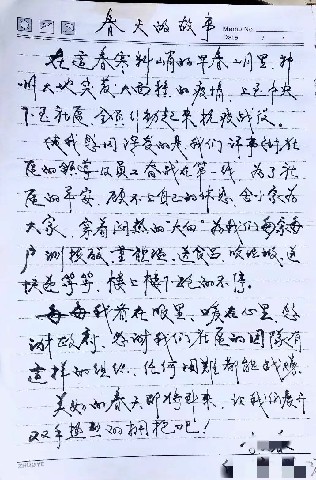 春天的故事
Memo No.
Date
在这春寒料峭的早春二月里，神
州大地突发大面积的疫情，上至中央
下至社区，全员行动起来抗疫战役。
使我感同深受的是我们
区的领导及员工奋战在第一线，为了社
区的平安，顾不上自己的休息，舍小家为
大家，穿着闷热的"大白"为我们每家每
户测核酸、量体温、送食品、送
等等，楼上楼下跑的不停。
我看在眼里，暖在心里，感
谢政府，感谢我们社区的团队有
这样的组织，任何困难都能战胜。
美好的春天即将到来，让我们展开
双手热烈的拥抱吧！